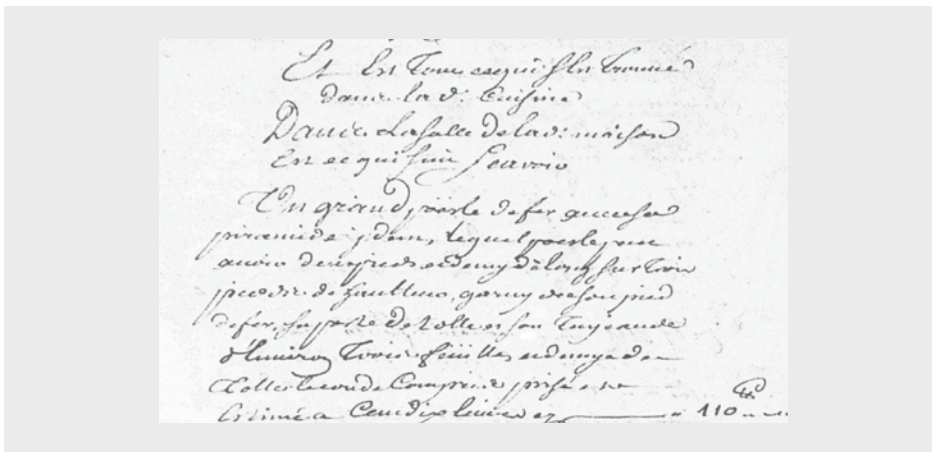 Et Est Tout cequi s'Est trouvé
dans la d: Cuisine
Dans La Salle de la d: maison
Est ce qui suit Scavoir
Un grand poësle de fer avec sa
piramide jdem, lequel poesle peut
avoir deux pieds et demy de long sur trois
pieds de haulteur, garny de son pied
de fer, sa porte de tolle et son tuyeau de
d'Environ Trois feüilles et demye de
Tolle Le coude Compris prisé et
Estimé a Cent dix Livres cy 110